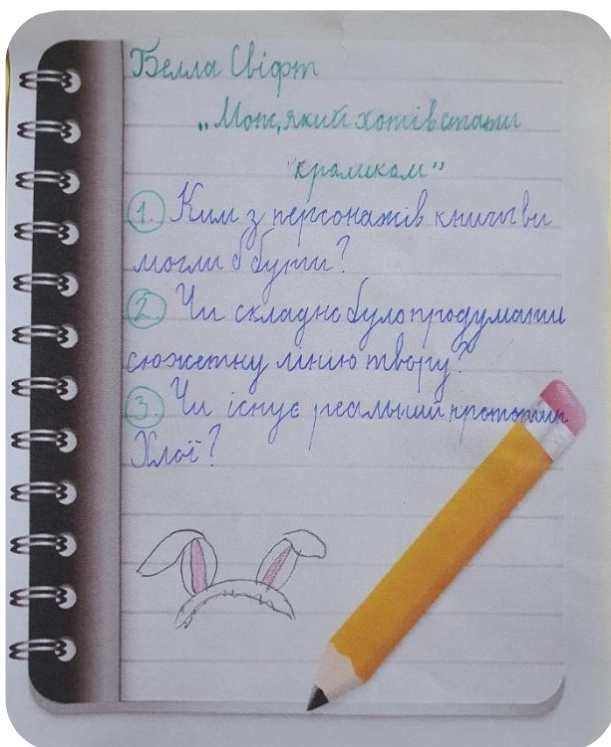 Белла Свіфт
„Мопс, який хотів стати
кроликом"
1. Ким з персонажів книги ви
могли б бути?
2. Чи складно було продумати
сюжетну лінію твору?
3. Чи існує реальний прототип
Хлої?